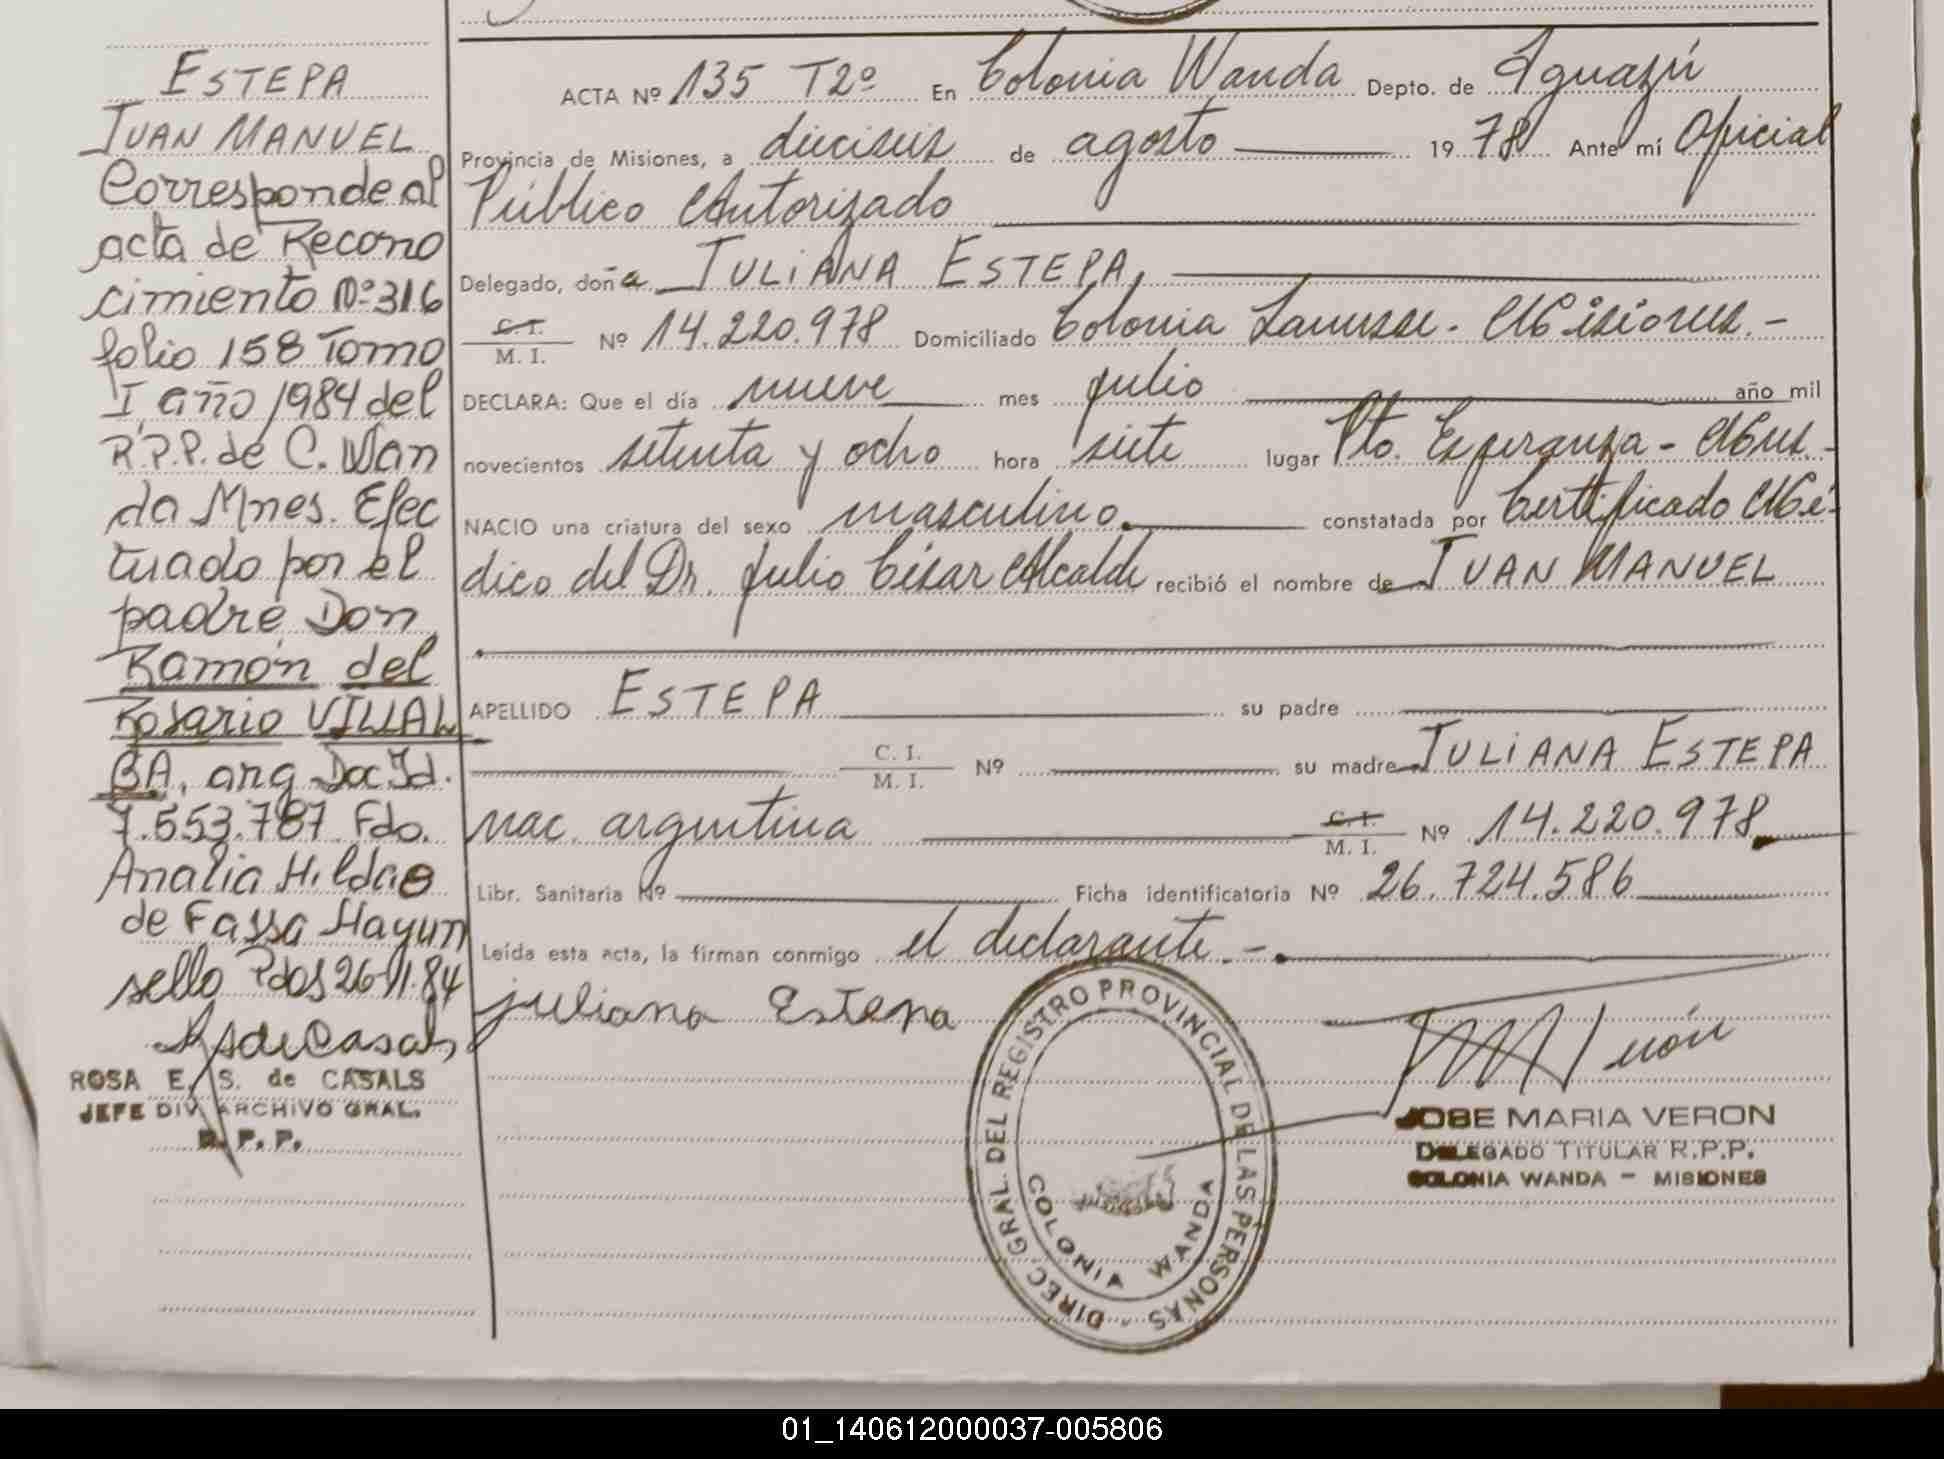 ESTEPA
JUAN MANUEL
Corresponde al
acta de Recono
cimiento Nº 316
folio 158 Tomo
I año 1984 del
R.P.P. de C. Wan
da Mnes. Efec
tuado por el
padre Don
Ramón del
Rosario VILLAL
BA, arg. Doc Id.
7.553.787 Fdo.
Analia H. Ilda
de Fassa Hay un
sello Pdos 26-11-84
ROSA E. S. de CASALS
JEFE DIV. ARCHIVO GRAL.
R. P. P.
ACTA Nº 135 T2º En Colonia Wanda Depto. de Iguazú
Provincia de Misiones, a dieciseis de agosto 1978 Ante mí Oficial
Público Autorizado
Delegado, doña JULIANA ESTEPA,
C. I.
M. I. Nº 14.220.978 Domiciliado Colonia Lanusse - Misiones. -
DECLARA: Que el día nueve mes julio año mil
novecientos setenta y ocho hora siete lugar Pto. Esperanza - Mnes. -
NACIO una criatura del sexo masculino constatada por Certificado Mé-
dico del Dr. Julio César Alcalde recibió el nombre de JUAN MANUEL
APELLIDO ESTEPA su padre
C. I.
M. I. Nº su madre JULIANA ESTEPA
nac. argentina C. I.
M. I. Nº 14.220.978
Libr. Sanitaria Nº Ficha identificatoria Nº 26.724.586
Leída esta acta, la firman conmigo el declarante. -
juliana Estepa
DIREC. GRAL. DEL REGISTRO PROVINCIAL DE LAS PERSONAS
COLONIA WANDA
JOSE MARIA VERON
DELEGADO TITULAR R.P.P.
COLONIA WANDA - MISIONES
01_140612000037-005806